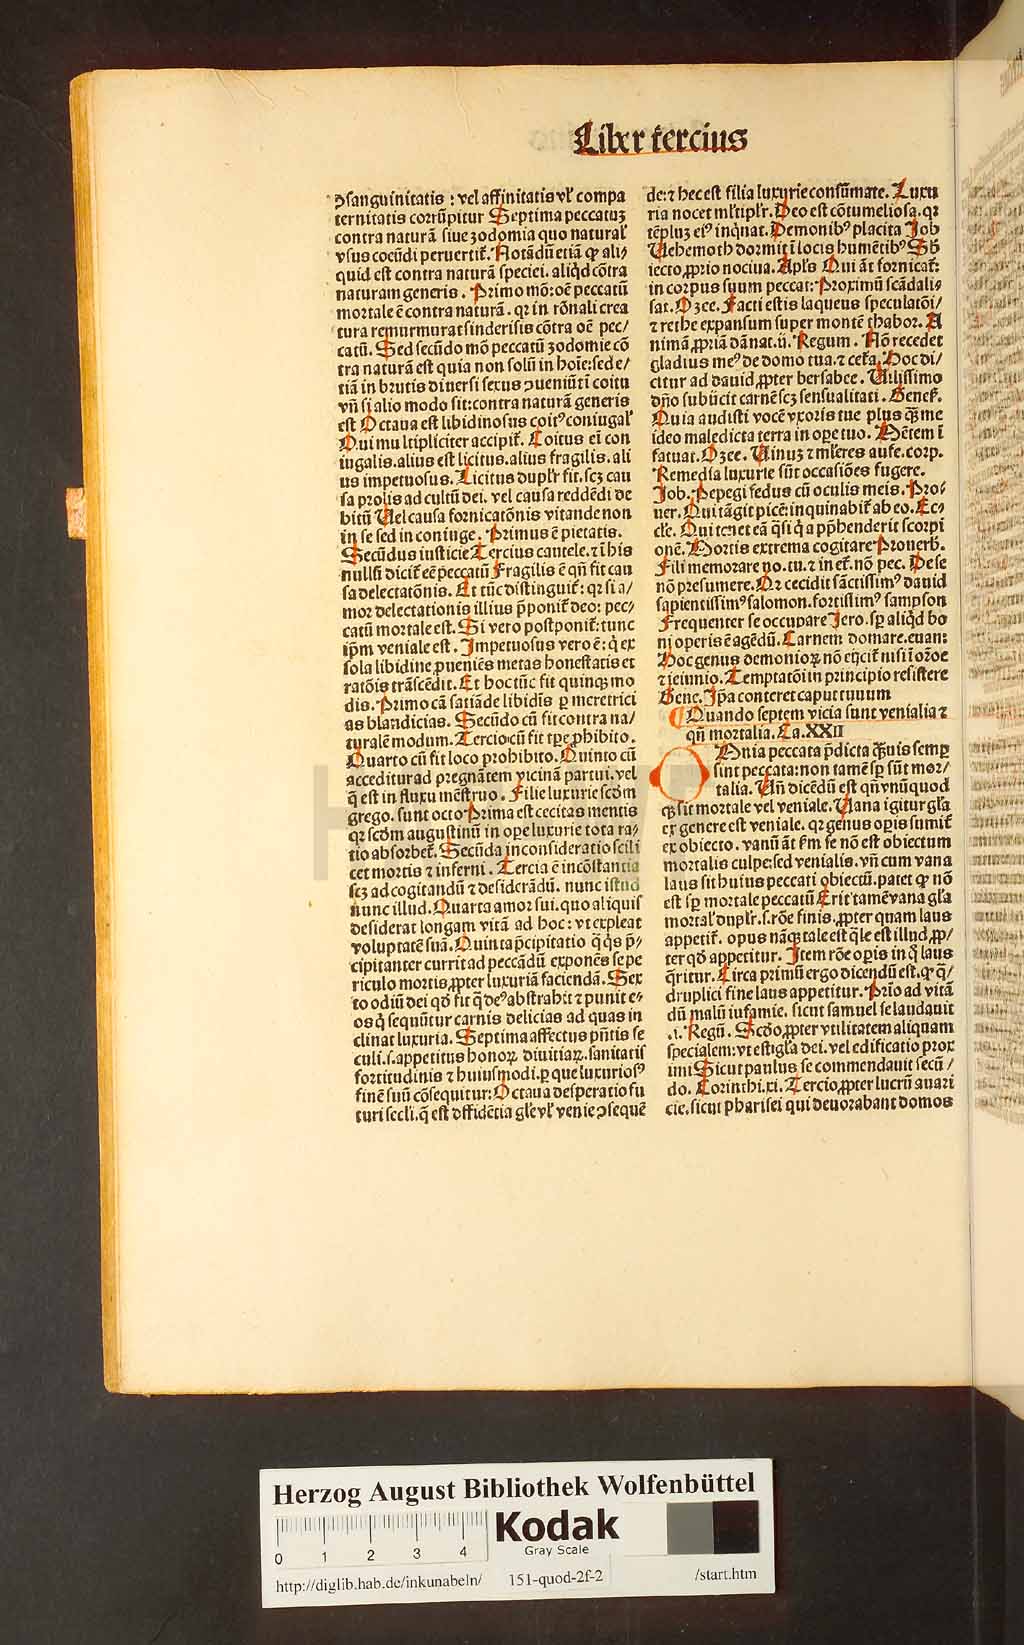 Liber tercius
ꝯsanguinitatis : vel affinitatis vł compa
ternitatis corrūpitur Septima peccatuʒ
contra naturā siue zodomia quo natural̕
vsus coeūdi peruertit̄. Notādū etiā ꝙ ali⸗
quid est contra naturā speciei. aliq̇d cōtra
naturam generis . Primo mō: oē peccatū
mortale ē contra naturā . qꝛ in rōnali crea
tura remurmurat sinderisis cōtra oē pec/
catū. Sed secūdo mō peccatū zodomie cō
tra naturā est quia non solū in hoīe: sed e/
tiā in brutis diuersi sexus ꝯueniūt ī coitu
vn̄ si alio modo sit: contra naturā generis
est Octaua est libidinosus coitꝰ coniugal̕
Qui multipliciter accipit̄. Coitus ei̅ con
iugalis. alius est licitus. alius fragilis. ali
us impetuosus. Licitus dupłr fit. scʒ cau
sa prolis ad cultū dei. vel causa reddēdi de
bitū Uel causa fornicatōnis vitande non
in se sed in coniuge. Primus ē pietatis.
Secūdus iusticie Tercius cautele. ⁊ ī his
nullū dicit̄ eē peccatū Fragilis ē qn̄ fit cau
sa delectatōnis. Et tūc distinguit̄: qꝛ si a/
mor delectationis illius p̄ponit̄ deo: pec⸗
catū mortale est. Si vero postponit̄: tunc
ip̄m veniale est . Impetuosus vero ē: q̇ ex
sola libidine ꝓueniēs metas honestatis et
ratōis trāscēdit. Et hoc tūc fit quinqʒ mo
dis. Primo cā satiāde libidīs ꝑ meretrici
as blandicias. Secūdo cū fit contra na/
turalē modum. Tercio cū fit tꝑe ꝓhibito.
Quarto cū fit loco prohibito. Quinto cū
acceditur ad pregnātem vicinā partui. vel
q̄ est in fluxu mēstruo . Filie luxurie scḋm
grego. sunt octo Prima est cecitas mentis
qꝛ scḋm augustinū in ope luxurie tota ra⸗
tio absorbet̄. Secūda inconsideratio scili
cet mortis ⁊ inferni. Tercia ē incōstantia
scʒ ad cogitandū ⁊ desiderādū. nunc istud
nunc illud. Quarta amor sui. quo aliquis
desiderat longam vitā ad hoc: vt expleat
voluptatē suā. Quinta p̄cipitatio q̇ q̇s p̄⸗
cipitanter currit ad peccādū exponēs se pe
riculo mortis ꝓpter luxuriā faciendā. Sex
to odiū dei qḋ fit q̄ deꝰ abstrahit ⁊ punit e⸗
os q̇ sequūtur carnis delicias ad quas in
clinat luxuria. Septima affectus pn̄tis se
culi. s. appetitus honoꝝ diuitiaꝝ. sanitatis
fortitudinis ⁊ huiusmodi. ꝑ que luxuriosꝰ
finē suū cōsequitur: Octaua desperatio fu
turi secli. q̄ est diffidētia gle̅ vł venie ꝯsequē
de: ⁊ hec est filia luxurie consūmate. Luxu
ria nocet młtipłr. Deo est cōtumeliosa. qꝛ
tēpluʒ eiꝰ inqnat. Demonibꝰ placita Job
Uehemoth dormit ī locis humētibꝰ Sb̄
iecto ꝓprio nociua. Apłs Qui āt fornicat̄:
in corpus suum peccat: Proximū scādali⸗
sat. Ozee. Facti estis laqueus speculatōi/
⁊ rethe expansum super montē thabor. A
nimā ꝓpriā dānat. ij. Regum . Nō recedet
gladius meꝰ de domo tua. ⁊ cet̄a. Hoc di/
citur ad dauid ꝓpter bersabee. Uilissimo
dn̄o subiicit carnē scʒ sensualitati. Genes̄.
Quia audisti vocē vxoris tue plus qʒ̄ me
ideo maledicta terra in ope tuo. Mētem ī
fatuat. Ozee. Uinuʒ ⁊ młieres aufe. corp.
Remedia luxurie sūt occasiōes fugere.
Job. Pepegi fedus cū oculis meis. Pro⸗
uer. Qui tāgit picē: inquinabit̄ ab eo. Ec⸗
cłe. Qui tenet eā q̄si q̇ apphenderit scorpi
onē. Mortis extrema cogitare Prouerb̄.
Fili memorare no. tu. ⁊ in et̄. nō pec. De se
nō presumere. Qꝛ cecidit sāctissimꝰ dauid
sapientissimꝰ salomon. fortissimꝰ sampson
Frequenter se occupare Jero. sꝑ aliq̇d bo
ni operis ē agēdū. Carnem domare. euan:
Hoc genus demonioꝝ nō eijcit̄ nisi ī orōe
⁊ ieiunio. Temptatōi in principio resistere
Gene. Ip̄a conteret caput tuuum
Quando septem vicia sunt venialia ⁊
qn̄ mortalia. Ca. XXII
OMnia peccata p̄dicta q̄uis semꝑ
sint peccata: non tamē sꝑ sūt mor/
talia. Un̄ dicēdū est qn̄ vnūquod
qʒ sit mortale vel veniale. Uana igitur gła
ex genere est veniale. qꝛ genus oꝑis sumit̄
ex obiecto. vanū āt ẜm se nō est obiectum
mortalis culpe: sed venialis. vn̄ cum vana
laus sit huius peccati obiectū. patet ꝙ nō
est sꝑ mortale peccatū Erit tamē vana gła
mortal̕ dupłr. s. rōe finis. ꝓpter quam laus
appetit̄. opus nāqʒ tale est q̄le est illud. ꝓp/
ter qḋ appetitur. Item rōe oꝑis in q̇ laus
q̄ritur. Circa primū ergo dicendū est. ꝙ q̄/
druplici fine laus appetitur. Prīo ad vitā
dū malū iufamie. sicut samuel se laudauit
.i. Regū. Scḋo ꝓpter vtilitatem aliquam
specialem: vt est gła dei. vel edificatio prox
imi Sicut paulus se commendauit secū /
do. Corinthi. xi. Tercio ꝓpter lucrū auari
cie. sicut pharisei qui deuorabant domos
Herzog August Bibliothek Wolfenbüttel
Kodak
Gray Scale
0 1 2 3 4
http://diglib.hab.de/inkunabeln/ 151-quod-2f-2 /start.htm